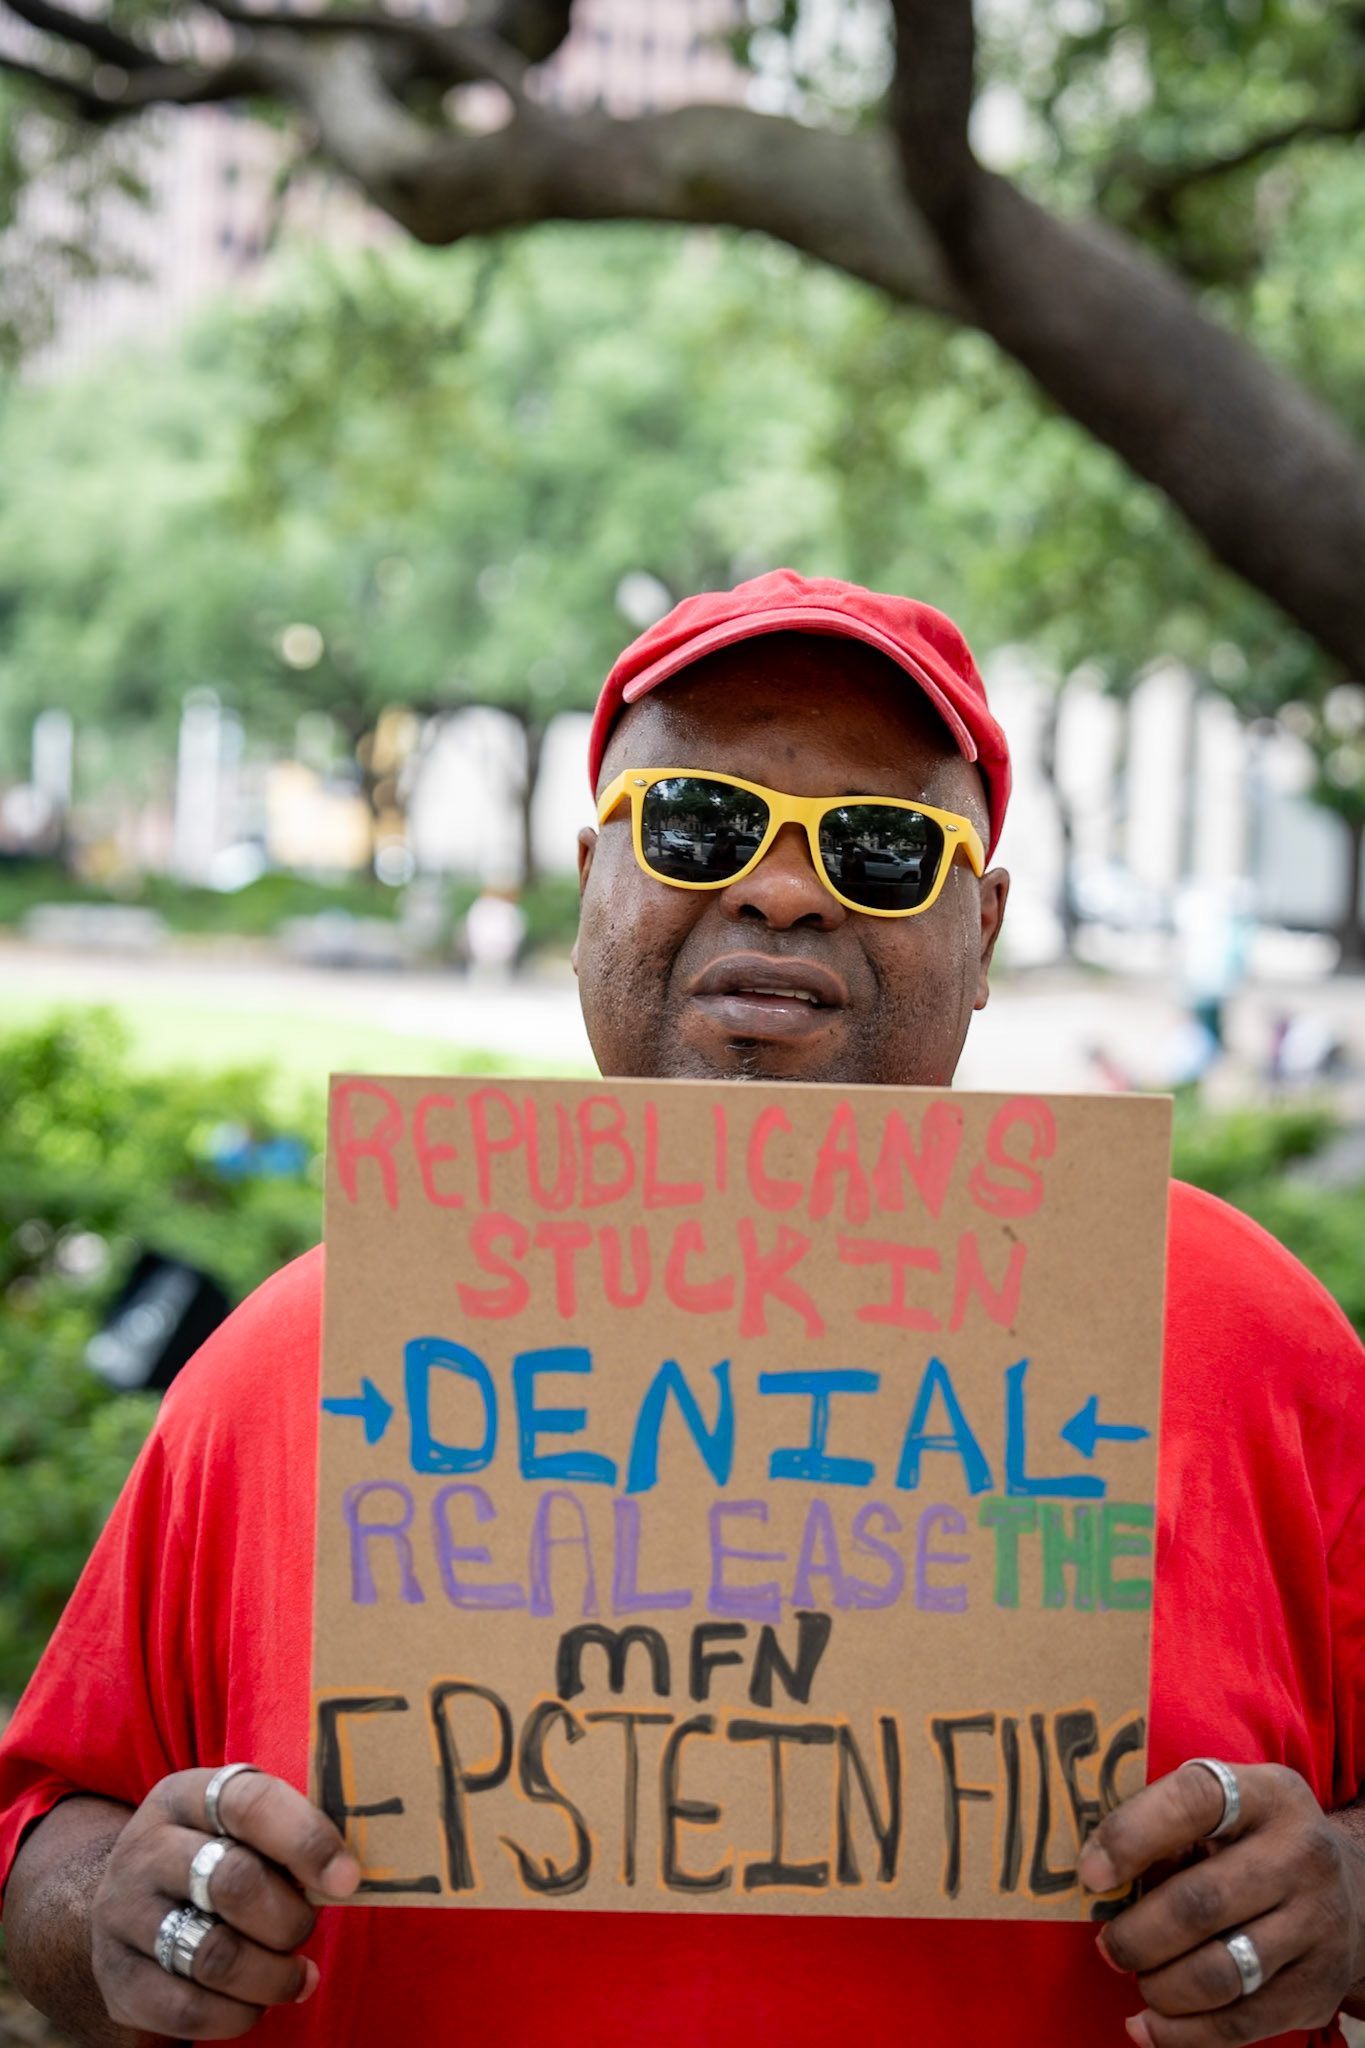 REPUBLICANS
STUCK IN
→DENIAL←
REALEASE THE
MFN
EPSTEIN FILES